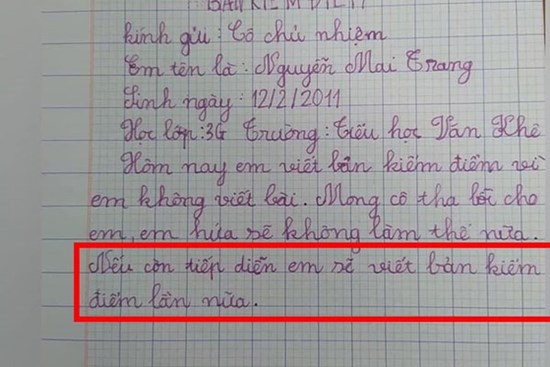 BẢN KIỂM ĐIỂM
kính gửi : Cô chủ nhiệm
Em tên là : Nguyễn Mai Trang
Sinh ngày : 12/2/2011
Học lớp : 3G Trường : Tiểu học Văn Khê
Hôm nay em viết bản kiểm điểm vì
em không viết bài. Mong cô tha lỗi cho
em, em hứa sẽ không làm thế nữa.
Nếu còn tiếp diễn em sẽ viết bản kiểm
điểm lần nữa.